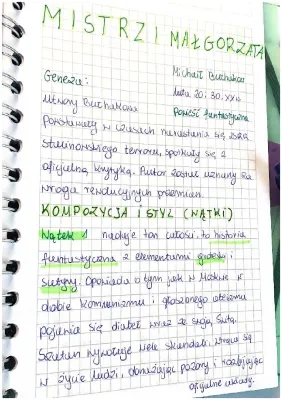 MISTRZ I MAŁGORZATA
Michaił Bułhakow
Geneza:
lata 20 i 30. XX w
powieść fantastyczna
Utwory Bułhakowa
powstawały w czasach narastania się
stalinowskiego terroru, spotkały się z
oficjalną krytyką. Autor został uznany za
wroga rewolucyjnych przemian.
KOMPOZYCJA I STYL (WĄTKI)
Wątek 1 nadaje ton całości, to historia
fantastyczna z elementami groteski i
satyry. Opowiada o tym jak w Moskwie w
dobie komunizmu i głoszonego ateizmu
pojawia się diabeł wraz ze swoją świtą.
Szatan wywołuje wiele skandali, wtrąca się
w życie ludzi, obnażając pozory i rozbijając
oficjalne układy.